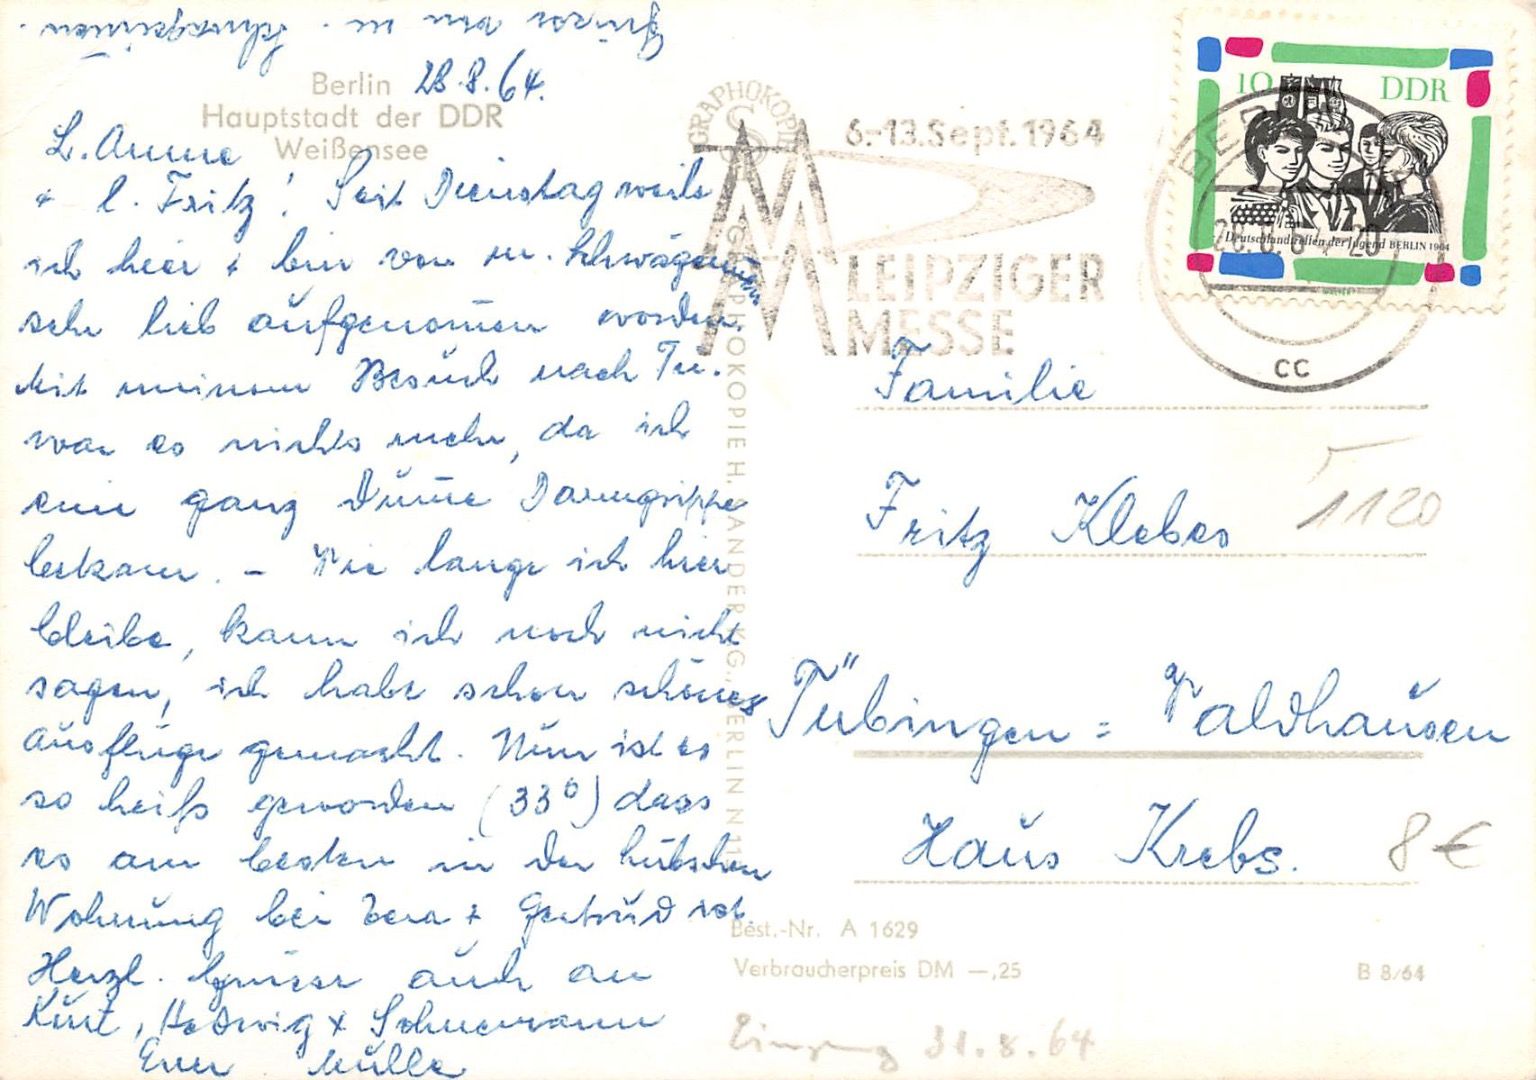 Grüsse von m. Schwägerinnen.
Berlin 28.8.64.
Hauptstadt der DDR
Weißensee
L. Anne
+ l. Fritz! Seit Dienstag weile
ich hier + bin von m. Schwägerinnen
sehr lieb aufgenommen worden.
Mit meinem Besuch nach Tü.
war es nichts mehr, da ich
eine ganz dumme Darmgrippe
bekam. – Wie lange ich hier
bleibe, kann ich noch nicht
sagen, ich habe schon schönes
Ausflüge gemacht. Nun ist es
so heiß geworden (33°) dass
es am besten in der hübschen
Wohnung bei Vera + Gertrud ist
Herzl. Grüsse auch an
Kurt, Hedwig + Schnemann
Eure
GRAPHOKOPIE
GRAPHOKOPIE H. SANDER KG., BERLIN N
6.-13. Sept. 1964
LEIPZIGER
MESSE
10 DDR
Deutschlandtreffen der Jugend BERLIN 1964
BERLIN
28.8.64-20
cc
Familie
Fritz Klebes
1120
Tübingen = Waldhausen
Haus Krebs.
8 €
Best.-Nr. A 1629
Verbraucherpreis DM —,25
B 8/64
Eingang 31.8.64